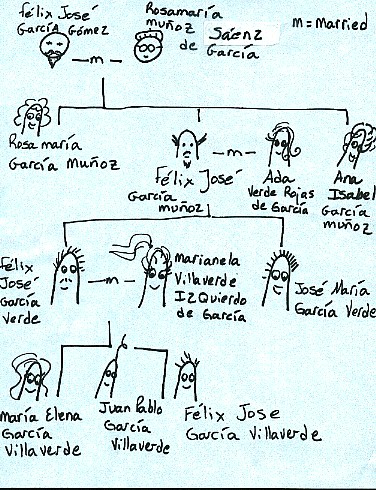 Félix José
García Gómez
Rosamaría
muñoz Sáenz
de García
m = Married
m
Rosa maría
García Muñoz
Félix José
García
muñoz
m
Ada
Verde Rojas
de García
Ana
Isabel
García
muñoz
Félix
José
García
Verde
m
marianela
Villaverde
IzQuierdo
de García
José María
García Verde
María Elena
García
Villaverde
Juan Pablo
García
Villaverde
Félix Jose
García Villaverde